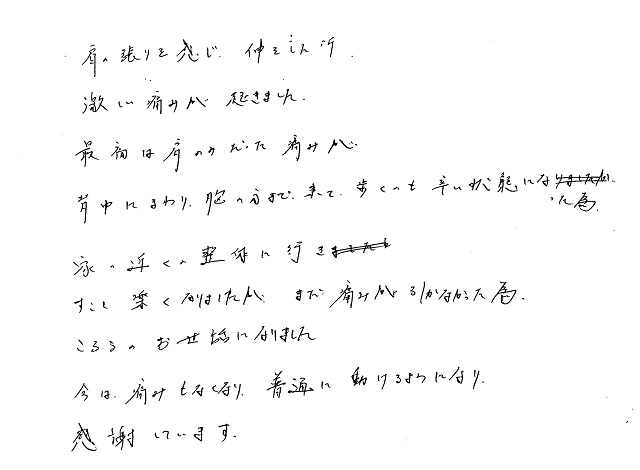 肩の張りを感じ、伸をした所
激しい痛みが起きました。
最初は肩のみだった痛みが、
背中にまわり、胸の方まで、来て、歩くのも辛い状態になりましたが、
った為、
家の近くの整体に行きましたら
すこし楽になりましたが まだ痛みが引かなかった為、
こちらのお世話になりました
今は、痛みもなくなり、普通に動けるようになり、
感謝しています。